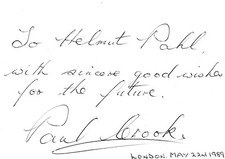 To Helmut Pahl,
with sincere good wishes
for the future.
Paul Crook.
LONDON. MAY 22nd 1989